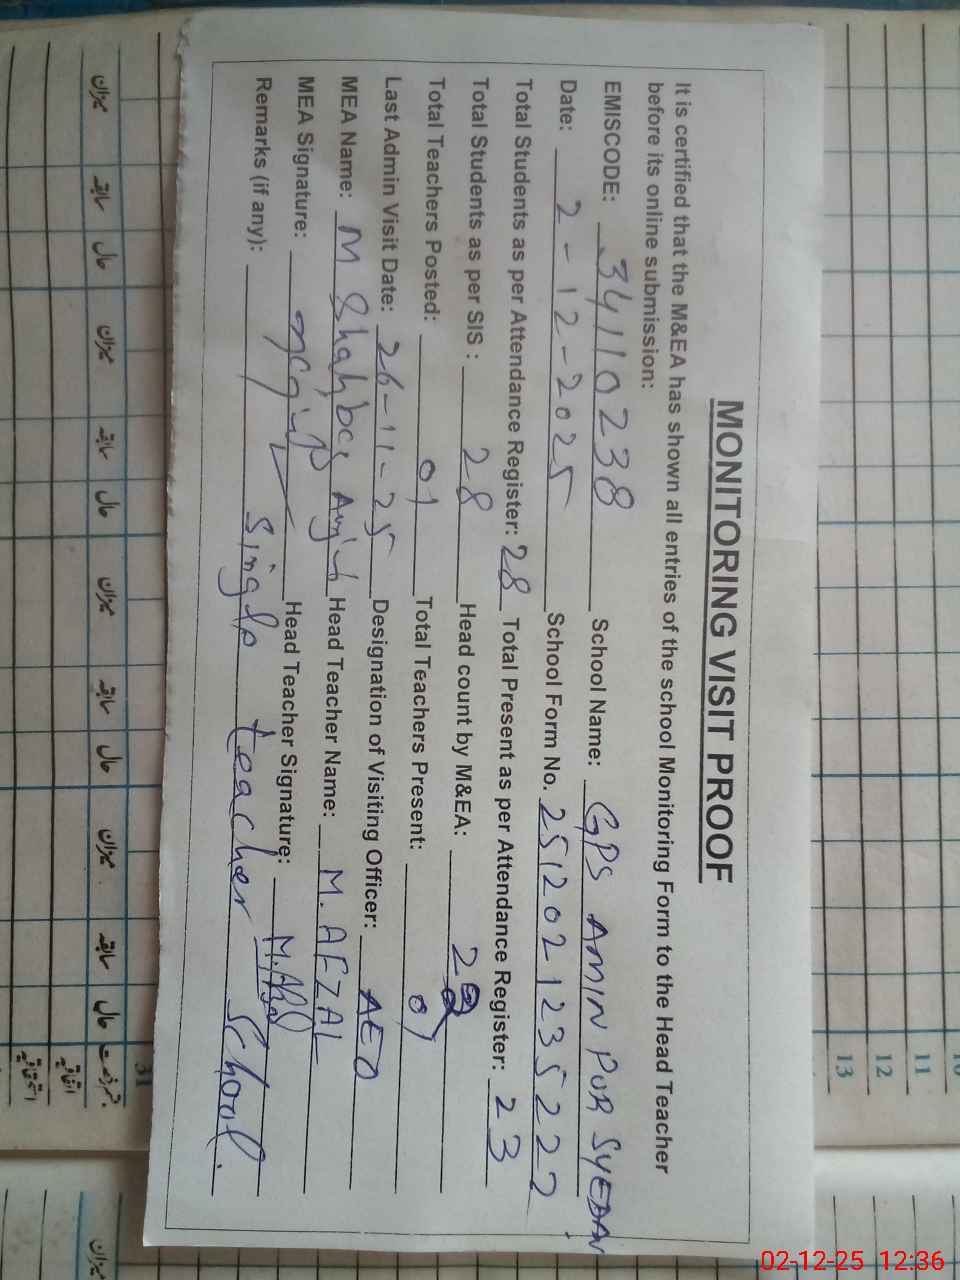 MONITORING VISIT PROOF
It is certified that the M&EA has shown all entries of the school Monitoring Form to the Head Teacher
before its online submission:
EMISCODE: 34110238 School Name: GPS AMIN PUR SYEDAN
Date: 2-12-2025 School Form No. 2512021235222
Total Students as per Attendance Register: 28 Total Present as per Attendance Register: 23
Total Students as per SIS : 28 Head count by M&EA: 2
Total Teachers Posted: 01 Total Teachers Present: 01
Last Admin Visit Date: 26-11-25 Designation of Visiting Officer: AEO
MEA Name: M Head Teacher Name: M. AFZAL
MEA Signature: Head Teacher Signature: M. Afzal
Remarks (if any): Single teacher School.
میزان سابقہ حال میزان سابقہ حال میزان سابقہ حال میزان سابقہ حال
31
10
11
12
13
میزان
02-12-25 12:36